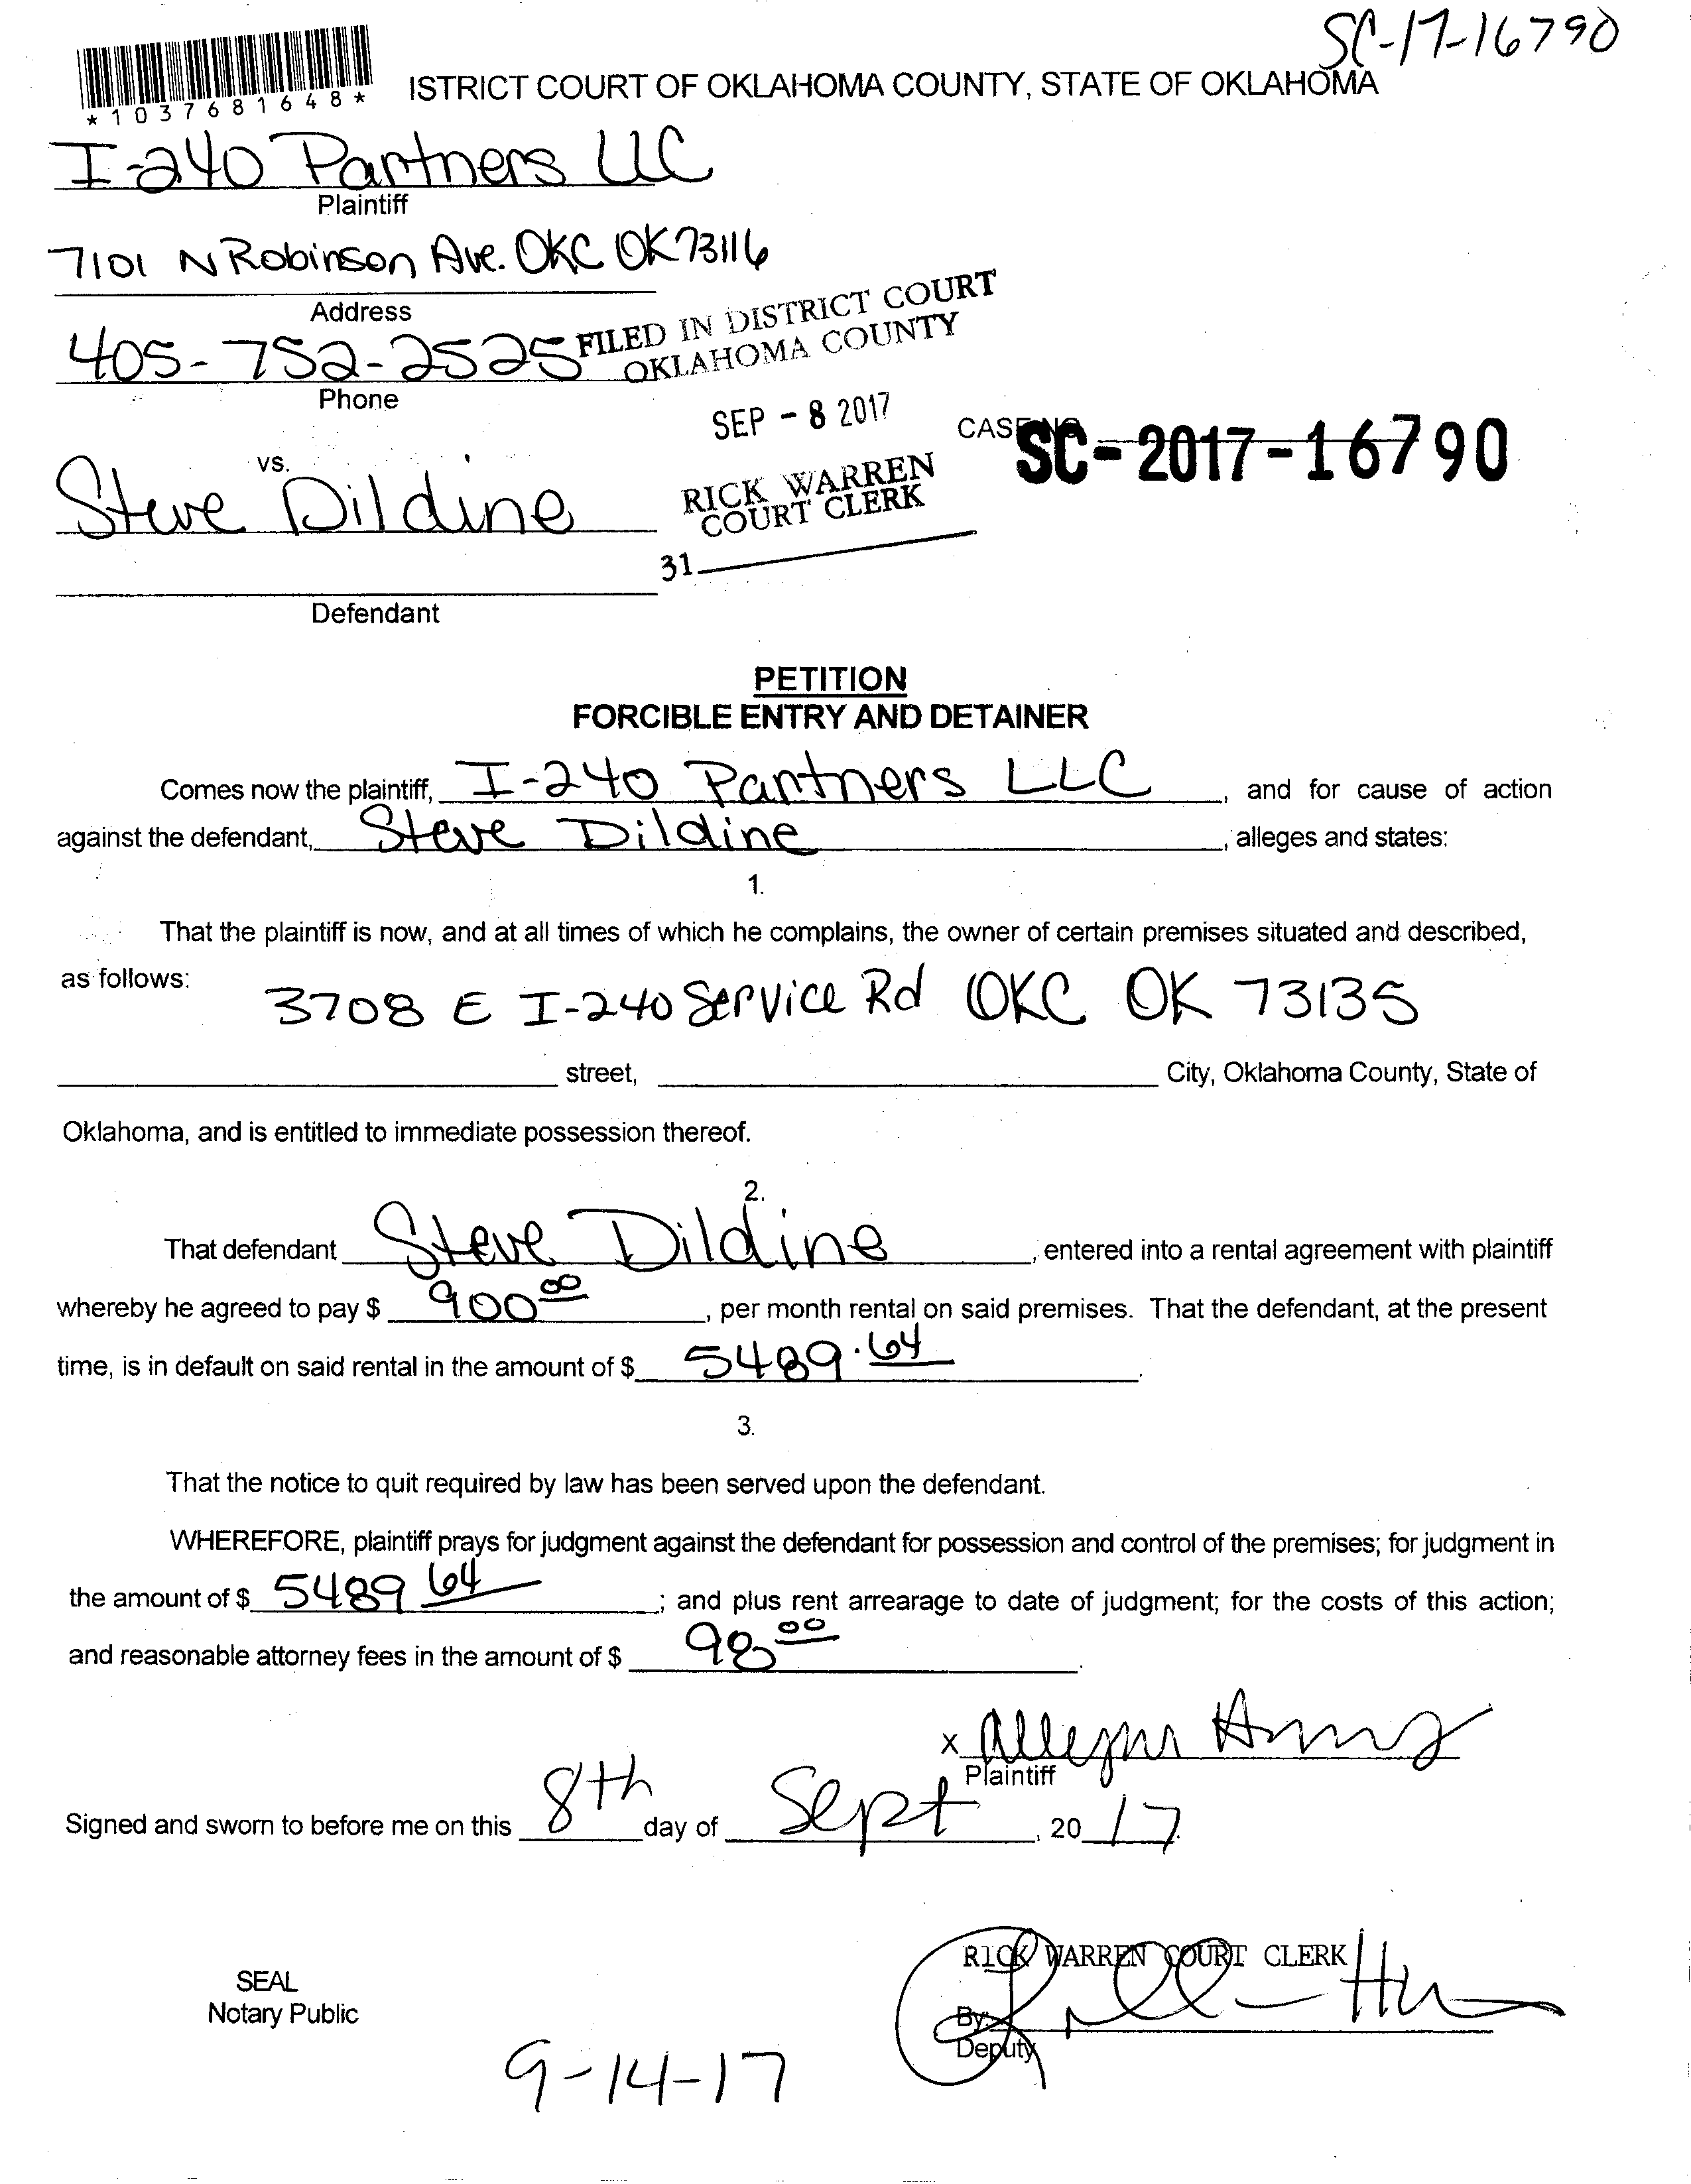 SC-17-16790
*1037681648*
ISTRICT COURT OF OKLAHOMA COUNTY, STATE OF OKLAHOMA
I-240 Partners LLC
Plaintiff
7101 N Robinson Ave. OKC OK 73116
Address
405-752-2525
Phone
FILED IN DISTRICT COURT
OKLAHOMA COUNTY
SEP - 8 2017
RICK WARREN
COURT CLERK
31
CASE NO
SC-2017-16790
vs.
Steve Dildine
Defendant
PETITION
FORCIBLE ENTRY AND DETAINER
Comes now the plaintiff, I-240 Partners LLC, and for cause of action
against the defendant, Steve Dildine, alleges and states:
1.
That the plaintiff is now, and at all times of which he complains, the owner of certain premises situated and described,
as follows:
3708 E I-240 Service Rd OKC OK 73135
street, City, Oklahoma County, State of
Oklahoma, and is entitled to immediate possession thereof.
2.
That defendant Steve Dildine, entered into a rental agreement with plaintiff
whereby he agreed to pay $ 900.00, per month rental on said premises. That the defendant, at the present
time, is in default on said rental in the amount of $ 5489.64.
3.
That the notice to quit required by law has been served upon the defendant.
WHEREFORE, plaintiff prays for judgment against the defendant for possession and control of the premises; for judgment in
the amount of $ 5489 64; and plus rent arrearage to date of judgment; for the costs of this action;
and reasonable attorney fees in the amount of $ 98 00.
x
Plaintiff
Signed and sworn to before me on this 8th day of Sept, 20 17.
RICK WARREN COURT CLERK
SEAL
Notary Public
By:
Deputy
9-14-17